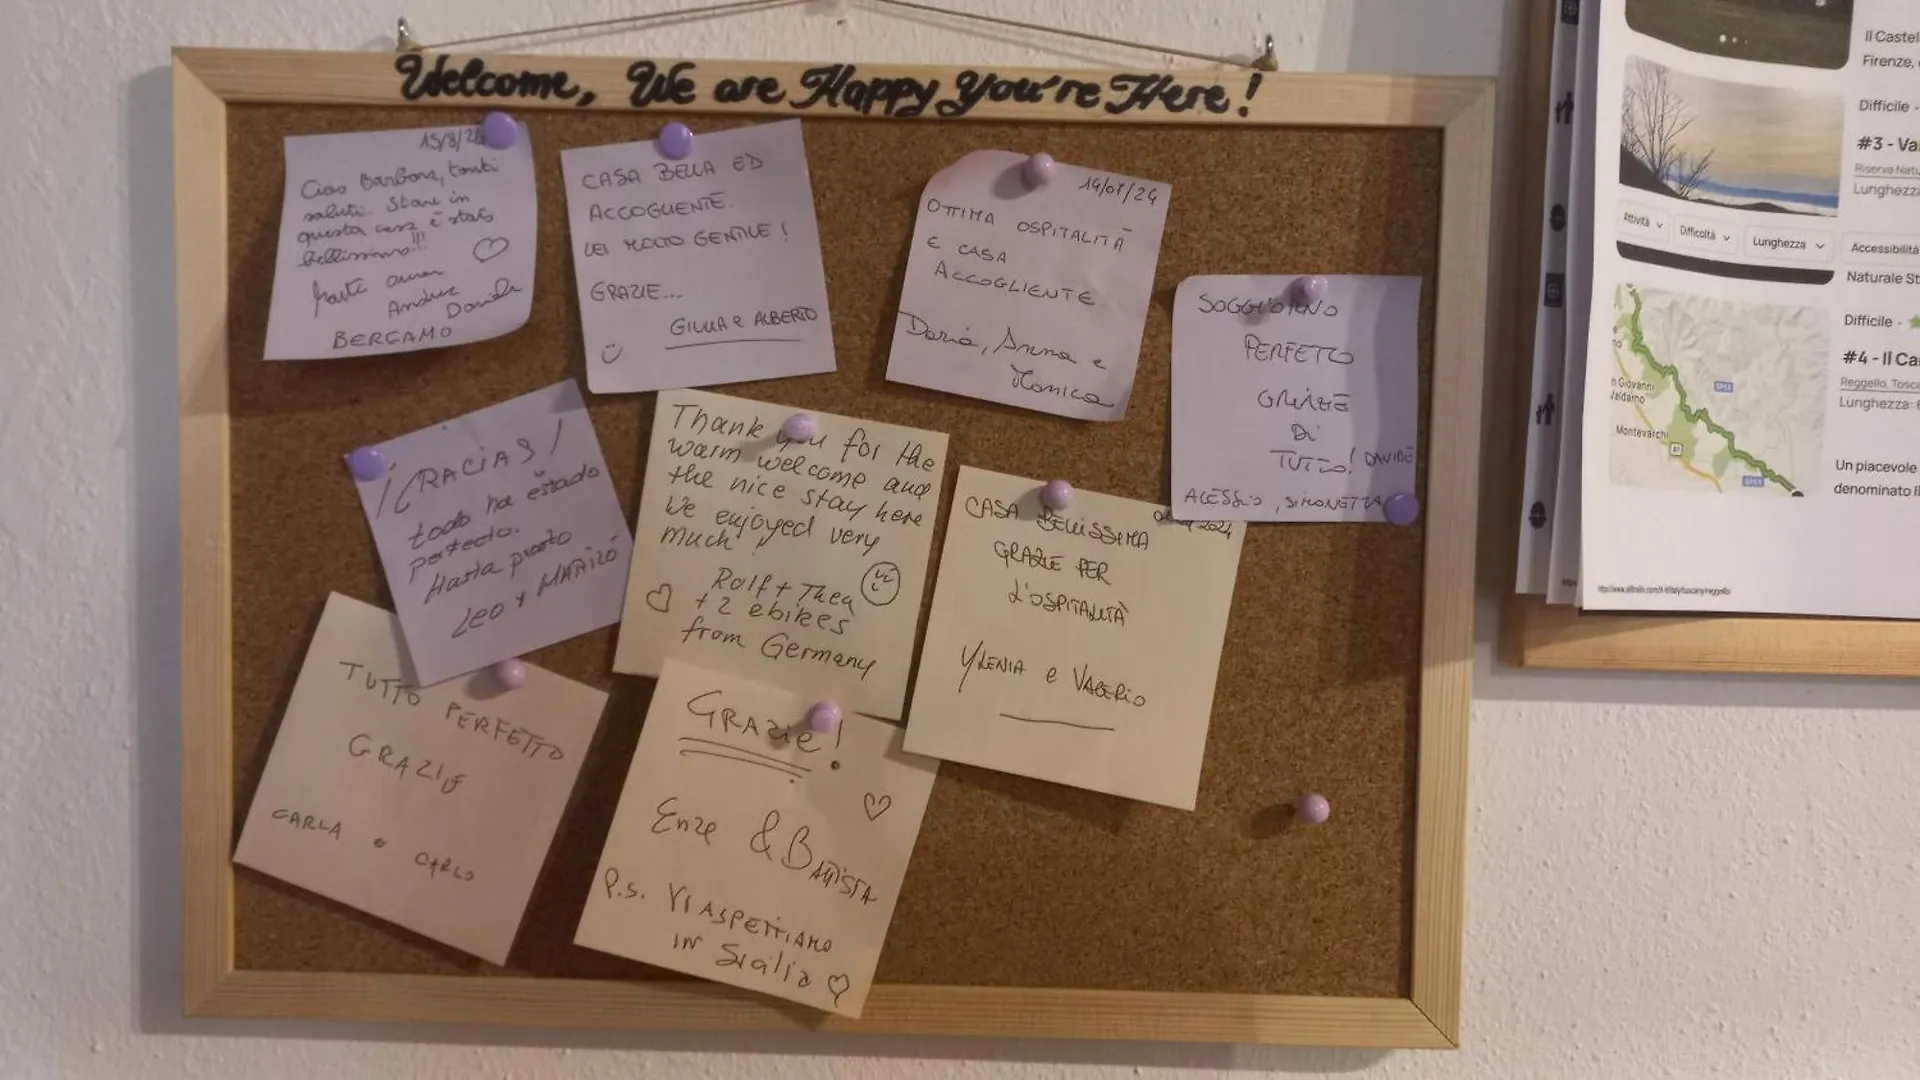 Welcome, We are Happy You're Here!
15/8/24
Ciao Barbara, tanti
saluti. Stare in
questa casa è stato
bellissimo!!!
Marta
Andrea Davide
BERGAMO
CASA BELLA ED
ACCOGLIENTE.
LEI MOLTO GENTILE!
GRAZIE...
GIULIA e ALBERTO
14/07/24
OTTIMA OSPITALITÀ
E CASA
ACCOGLIENTE
Daria, Anna e
Monica
SOGGIORNO
PERFETTO
GRAZIE
DI
TUTTO! DAVIDE
ALESSIO, SIMONETTA
¡GRACIAS!
todo ha estado
perfecto.
Hasta pronto
Leo y MARIRÓ
Thank you for the
warm welcome and
the nice stay here
We enjoyed very
much!
Rolf + Thea
+ 2 ebikes
from Germany
2024
CASA BELLISSIMA
GRAZIE PER
L'OSPITALITÀ
YLENIA e VALERIO
TUTTO PERFETTO
GRAZIE
CARLA e CARLO
GRAZIE!
Enze & BATTISTA
P.S. VI ASPETTIAMO
IN Sicilia
Il Castel
Firenze,
Difficile -
#3 - Va
Riserva Natu
Lunghezza
Attività
Difficoltà
Lunghezza
Accessibilità
Naturale St
Difficile -
#4 - Il Ca
Reggello, Tosca
Lunghezza:
n Giovanni
Valdarno
Montevarchi
A1
Un piacevole
denominato Il